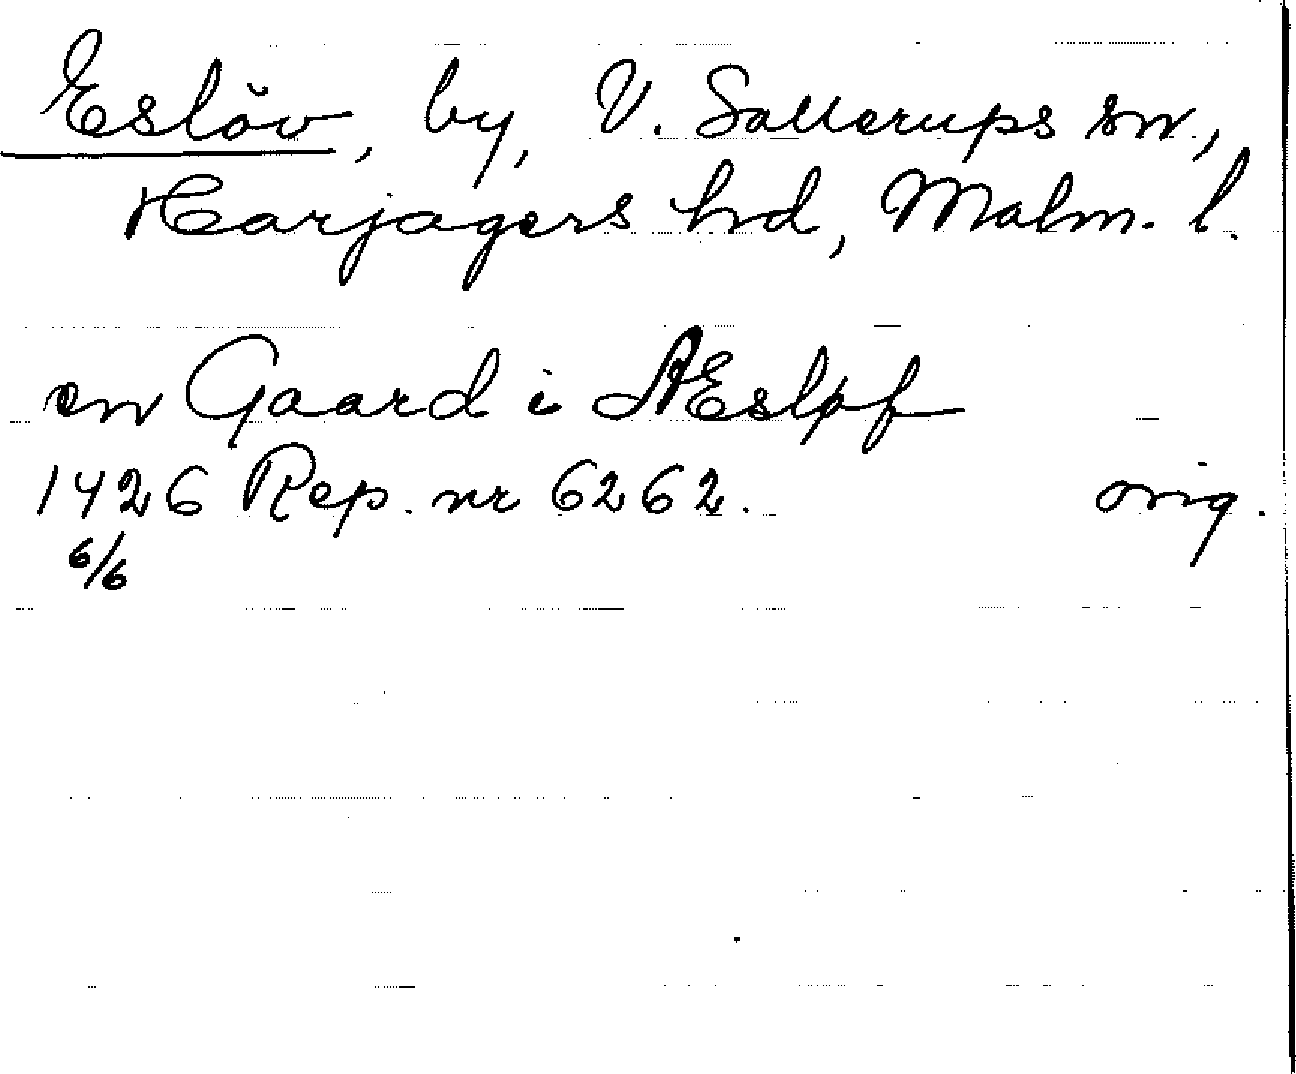 Eslöv, by, V. Sallerups sn,
Harjagers hd, Malm. l.
en Gaard i Æsløf
1426 Rep. nr 6262. orig.
6/6